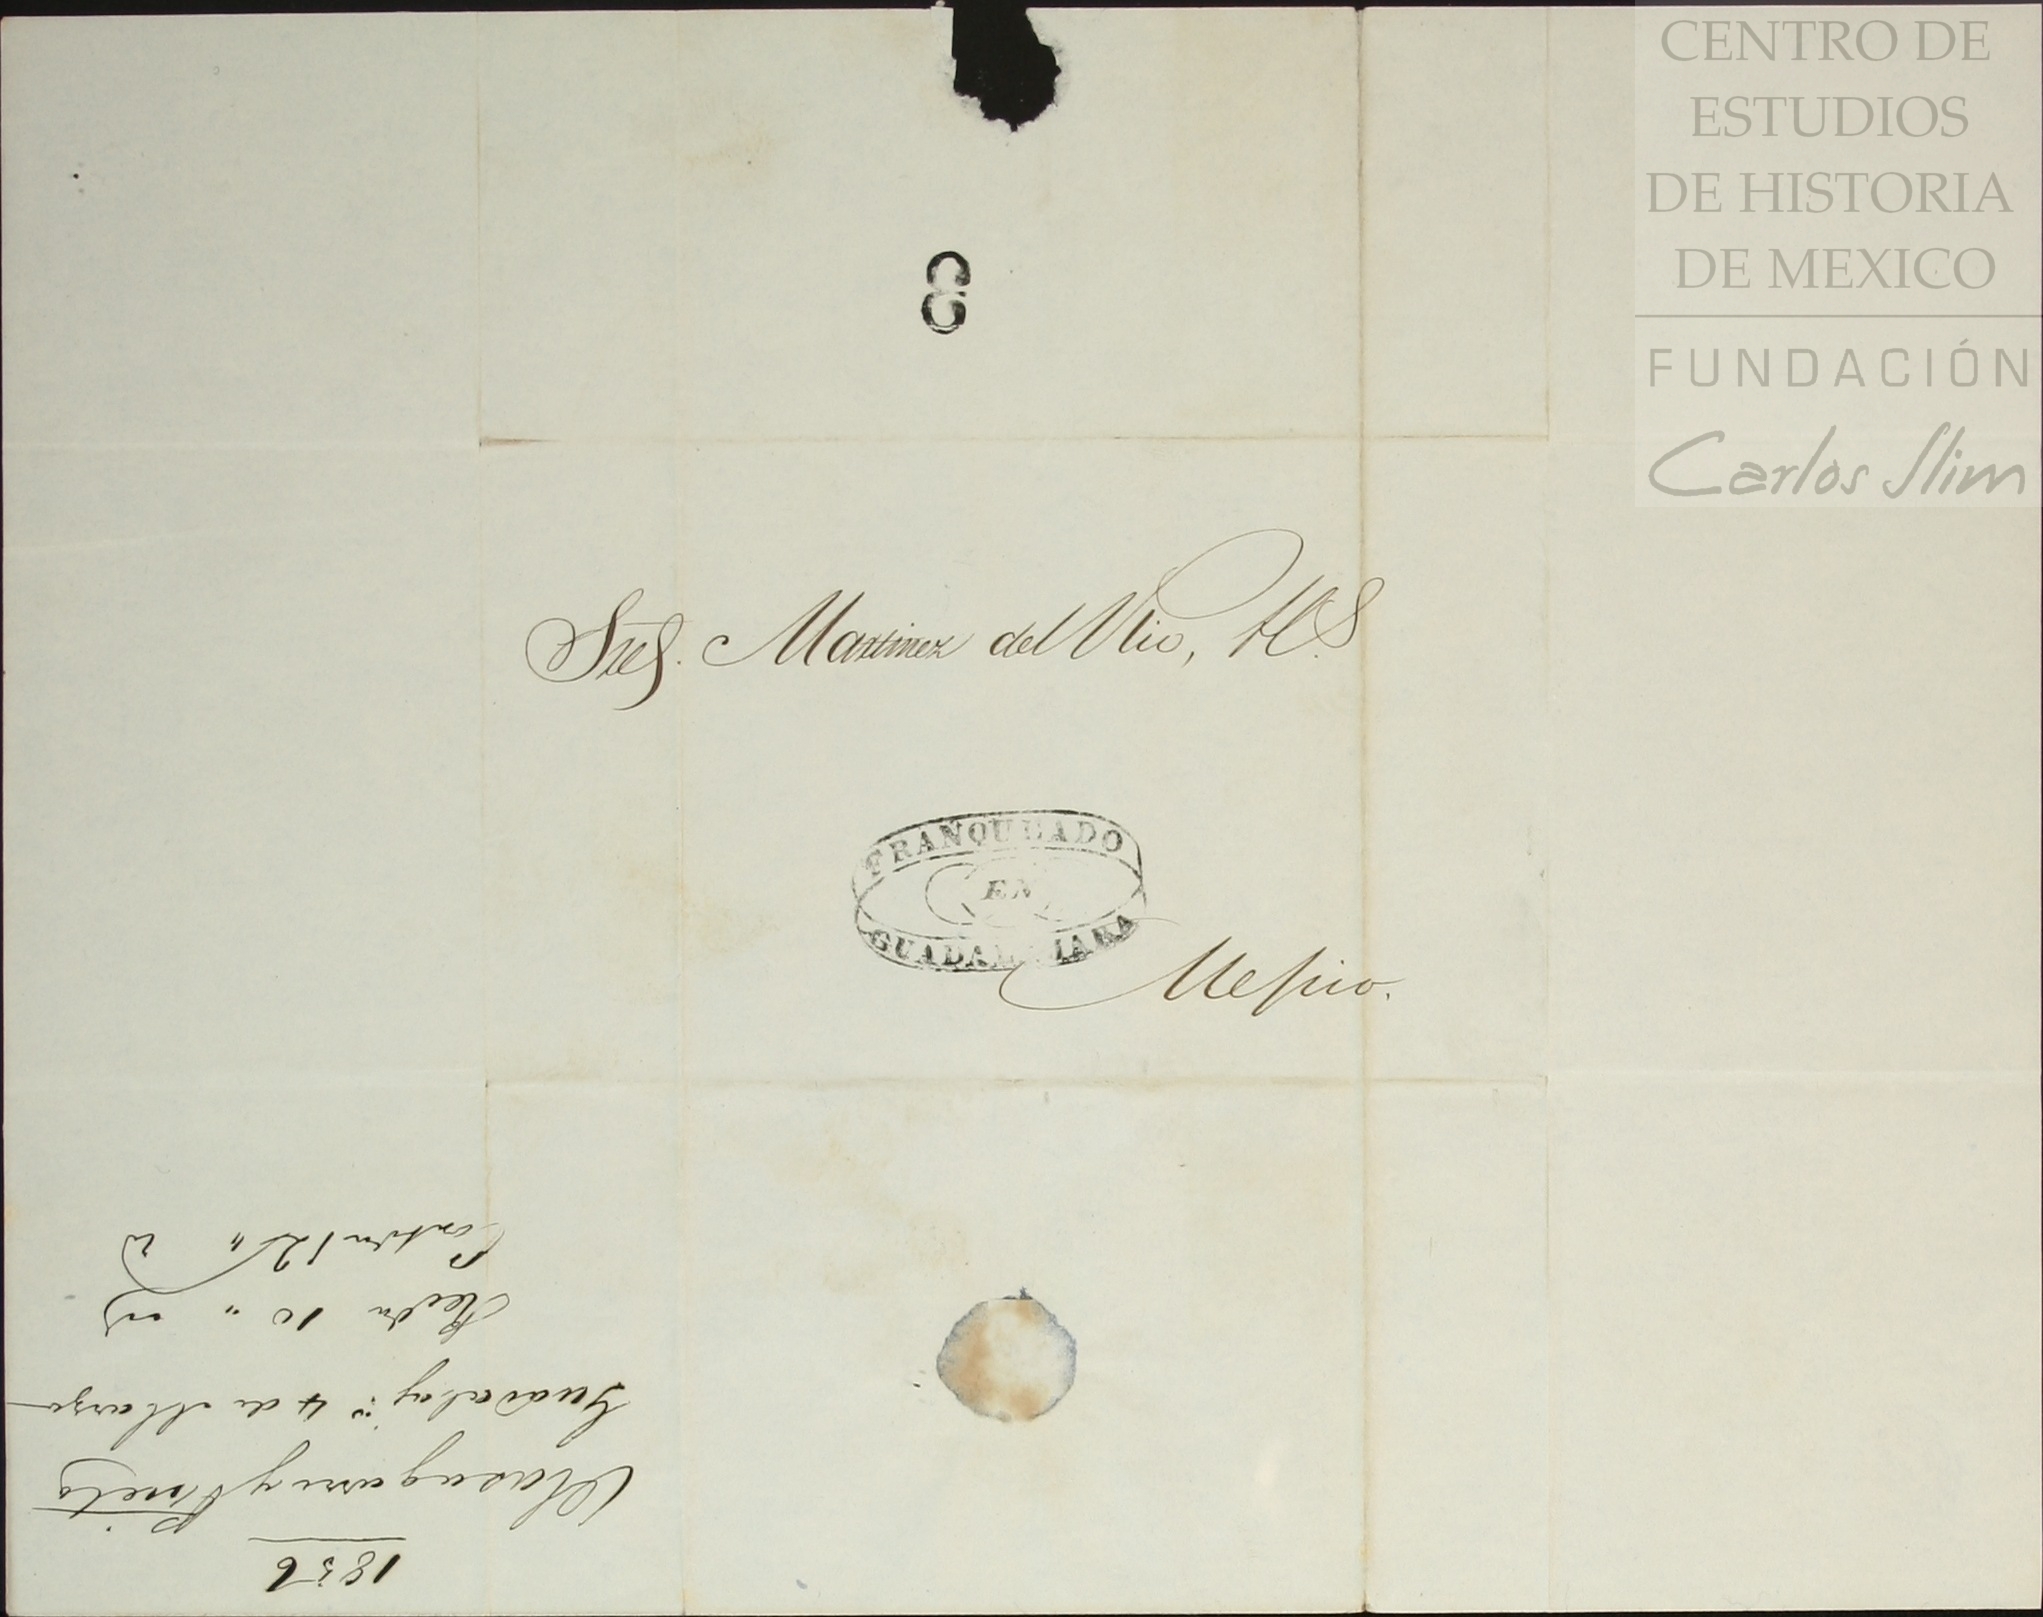 CENTRO DE
ESTUDIOS
DE HISTORIA
DE MEXICO
FUNDACIÓN
Carlos Slim
8
Sres. Martinez del Rio, Hs
FRANQUEADO
EN
GUADALAJARA
Mejico.
1856
Olasagarre y Prieto
Guadalaj.ª 4 de Marzo
Recda 10 " "
Contda 12 " "